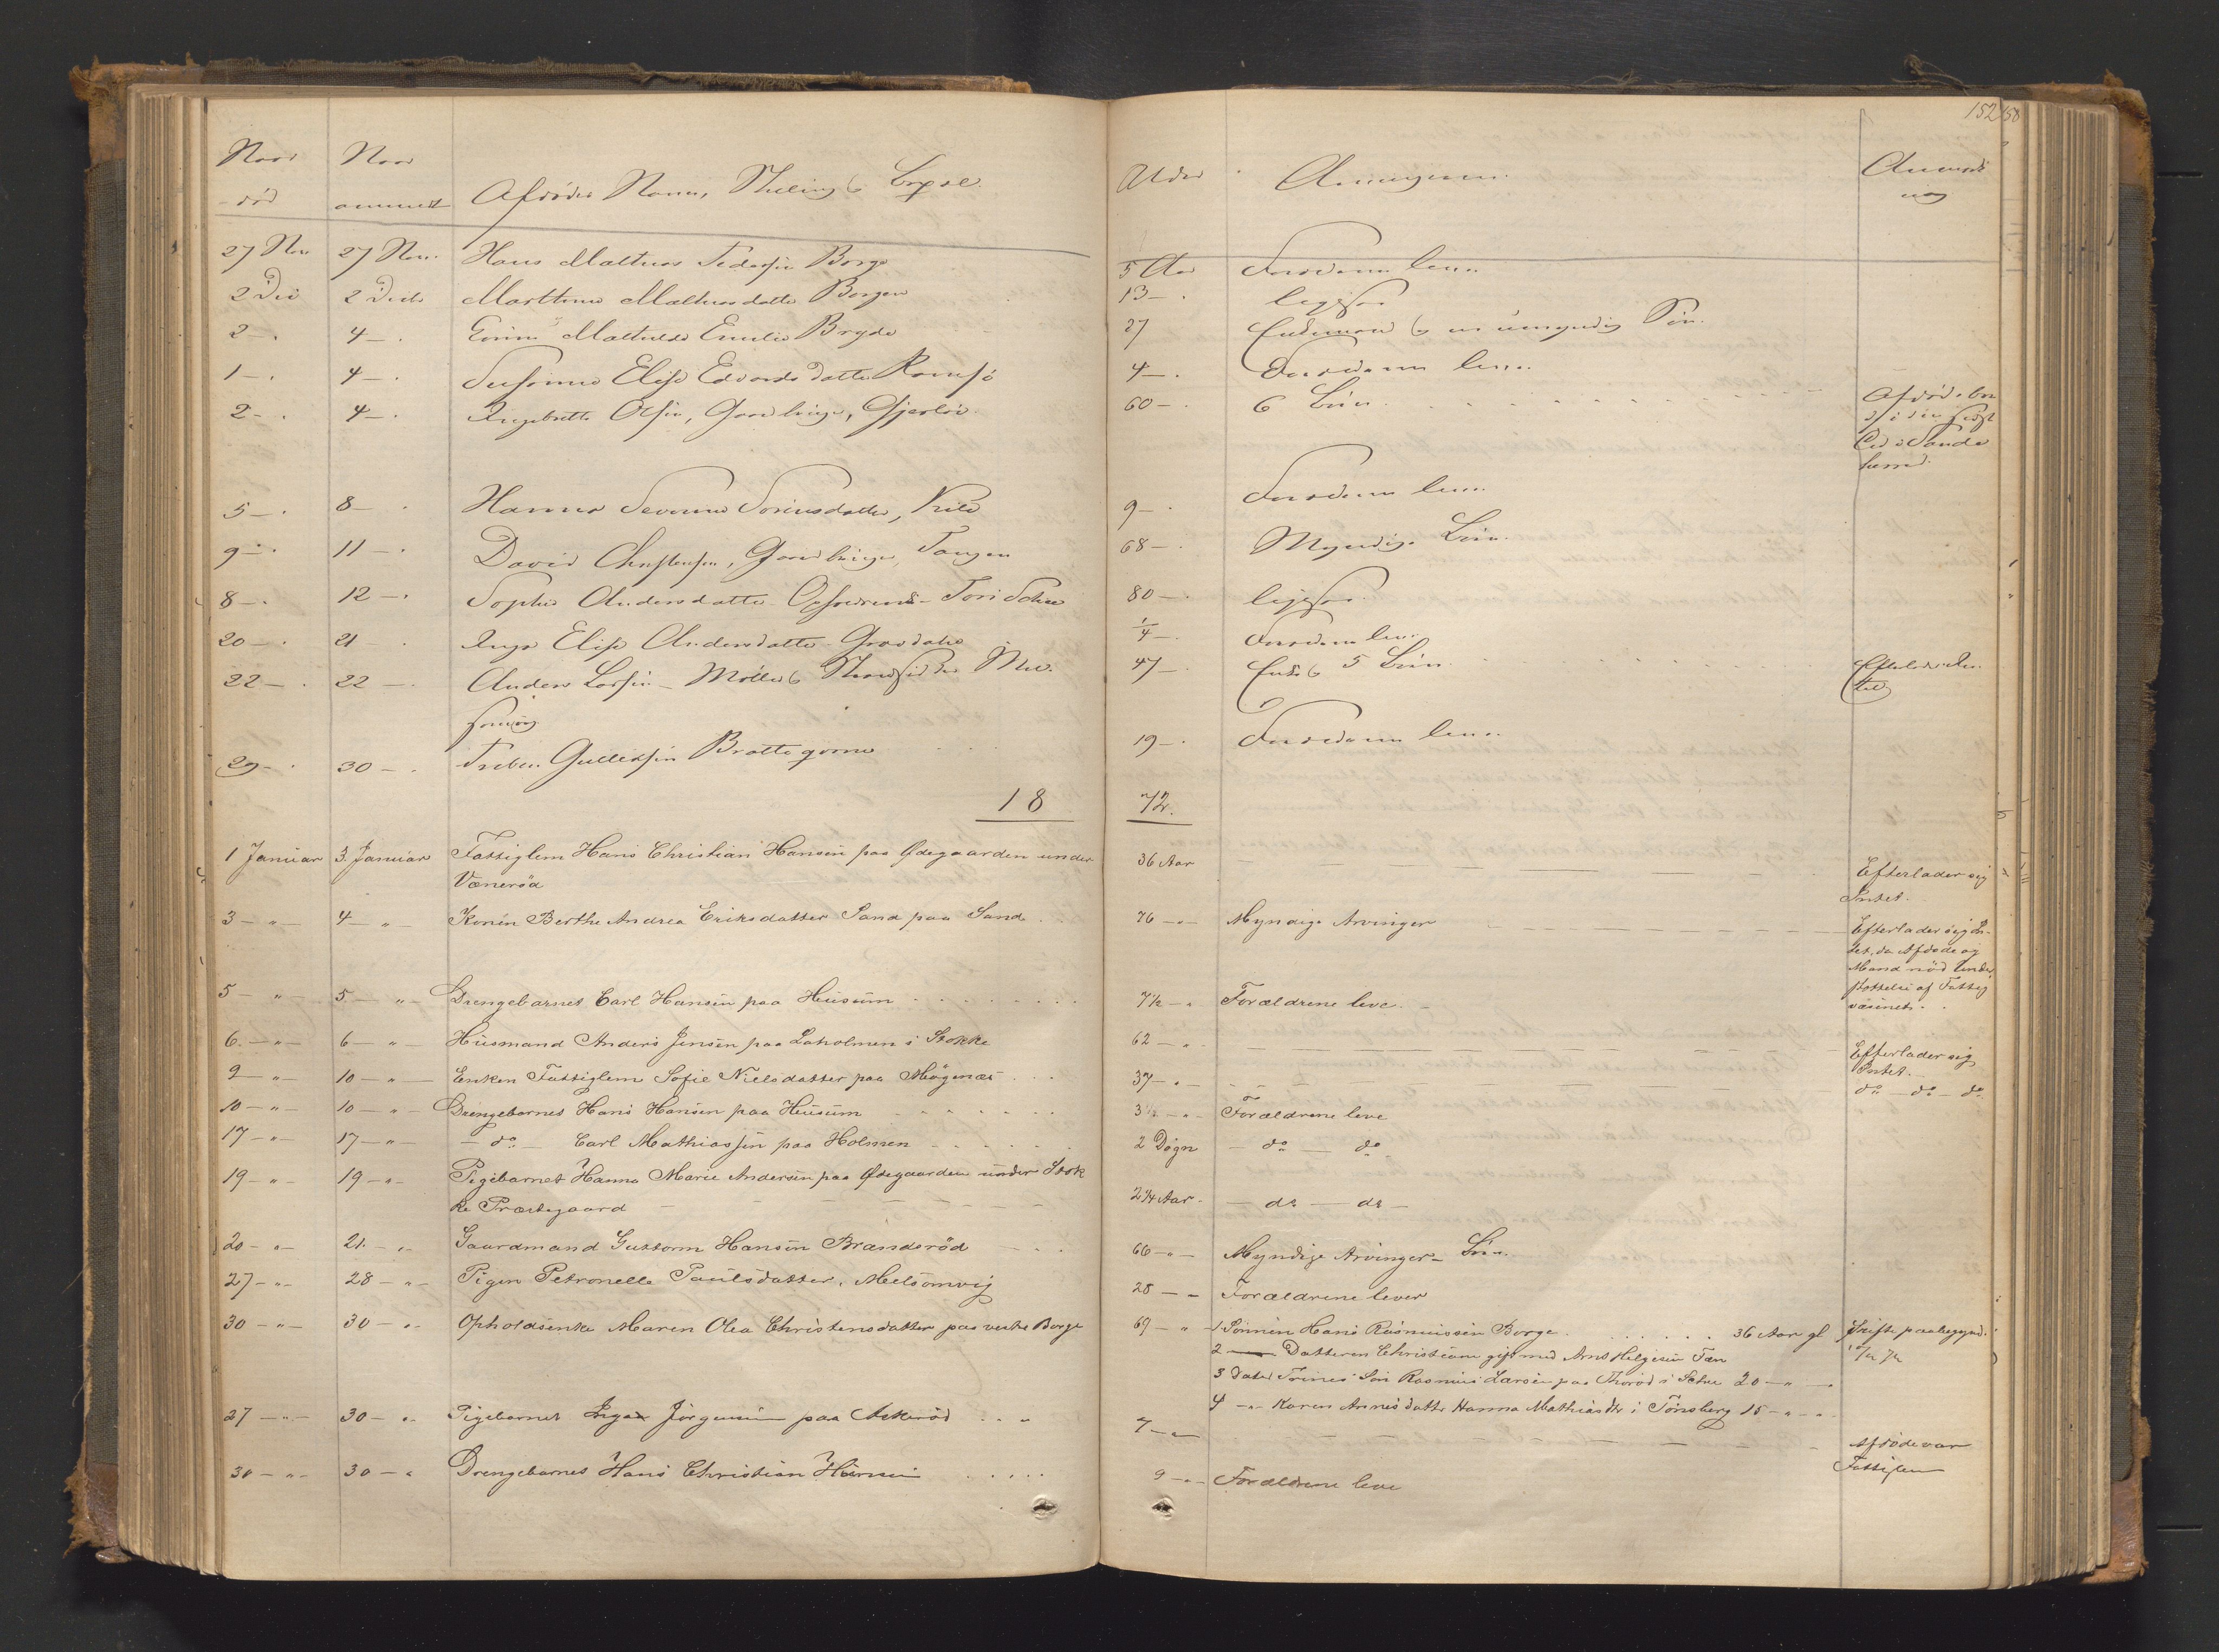 152
Naar død
Naar anmeldt
Afdødes Navn, Stilling & Bopæl
Alder
Arvingerne
Anmærkning
27 Nov 27 Nov. Hans Mathias Pedersen Borge 5 Aar Forældrene leve
2 Dec 2 Decb Marthine Mathiasdatter Borgen 13 — ligesaa
2 — 4 — Emma Mathilde Emilie Bryde 27 Enkemand & en umyndig Søn.
1 — 4 — Elise Edvardsdatter Ramsø 4 — Forældrene leve
2 — 4 — Ingebrette Olsen, Gaardbruger, Gjerløv 60 — 6 Børn
5 — 8 — Hanna Severine Sørensdatter, 9 — Forældrene leve
9 — 11 — David Christensen, Gaardbruger, Tangen 68 — Myndige Børn
8 — 12 — Sophie Andersdatter 80 — ligesaa
20 — 21 — Inga Elise Andersdatter 1/4 — Forældrene leve
22 — 22 — Anders Larsen — Møller & 47 — Enke & 5 Børn
29 — 30 — Preben Gulliksen Brattegorne 19 — Forældrene leve
18 72.
1 Januar 3. Januar Fattiglem Hans Christian Hansen paa Ødegaarden under 36 Aar — — — Efterlader sig
Vænerøa Intet.
3 — " — 4 — " — Konen Berthe Andrea Eriksdatter Sand paa Sand 76 — " — Myndige Arvinger Efterlader sig In-
tet, da Afdøde og
Mand nød Under
støttelse af Fattig
væsenet.
5 — " — 5 — " — Drengebarnet Carl Hansen paa Husum 7½ — " Forældrene leve.
6. — " — 6 — " — Husmand Anders Jensen paa Laholmen i Stokke 62 — " Efterlader sig
Intet.
9 — " — 10 — " — Enken Fattiglem Sofie Nielsdatter paa Møgenæs 37 — " — do — do — do
10 — " — 10 — " — Drengebarnet Hans Hansen paa Husum 3½ — " — Forældrene leve
17 — " — 17 — " — — do — Carl Mathiassen paa Holmen 2 Døgn — do — do
19 — " — 19 — " — Pigebarnet Hanna Marie Andersen paa Ødegaarden under Stok 2¾ Aar — do — do —
ke Præstegaard
20 — " — 21. — " — Gaardmand Guttorm Hansen Brænderød 66 — " — Myndige Arvinger — Børn
27 — " — 28 — " — Pigen Petronelle Paulsdatter, Melsomvig 28 — — Forældrene lever
30 — " — 30 — " — Opholdsenke Maren Olea Christensdatter paa vestre Borge 69 — " — 1 Sønnen Hans Rasmussen Borge 36 Aar gl Skifte paabegynd.
2 — Datteren Christiane gift med Arns Helgesen Fæn
3 Datter Trines Søn Rasmus Larsen paa Thorød i Sehm 20 — " —
4 — " — Karen Annes datter Hanna Mathiasdtr i Tønsberg 15 — " —
27 — " — 30 — " Pigebarnet Inga Jørgensen paa Askerød 7 — " Afdøde var
Fattiglem
30 — " — 30 — " Drengebarnet Hans Christian Hansen 9 — " — Forældrene leve